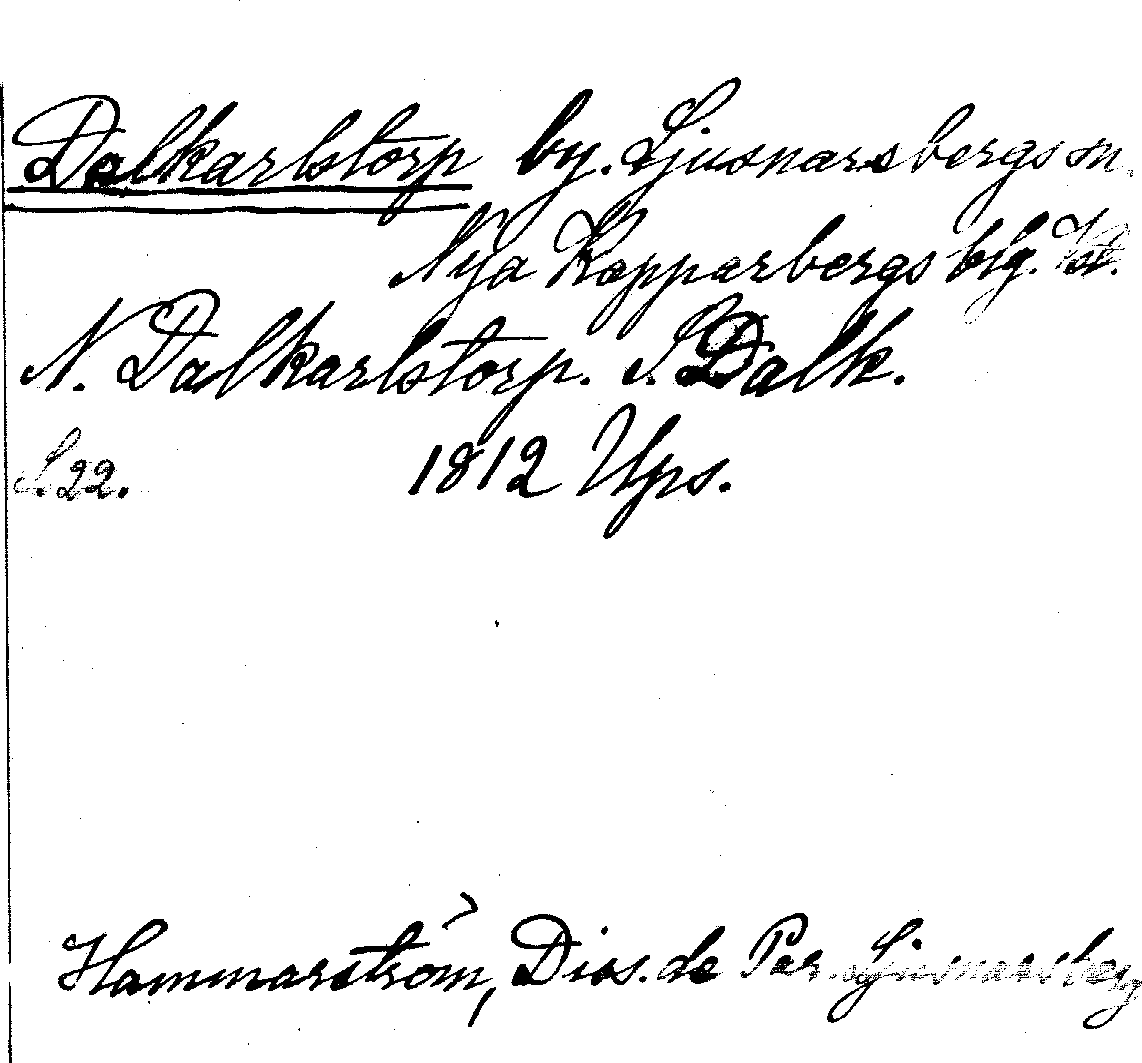 Dalkarlstorp by. Ljusnarsbergs sn.
Nya Kopparbergs blg.
N. Dalkarlstorp. S. Dalk.
S. 22. 1812 Ups.
Hammarström, Diss. de Par. Ljusnarsberg